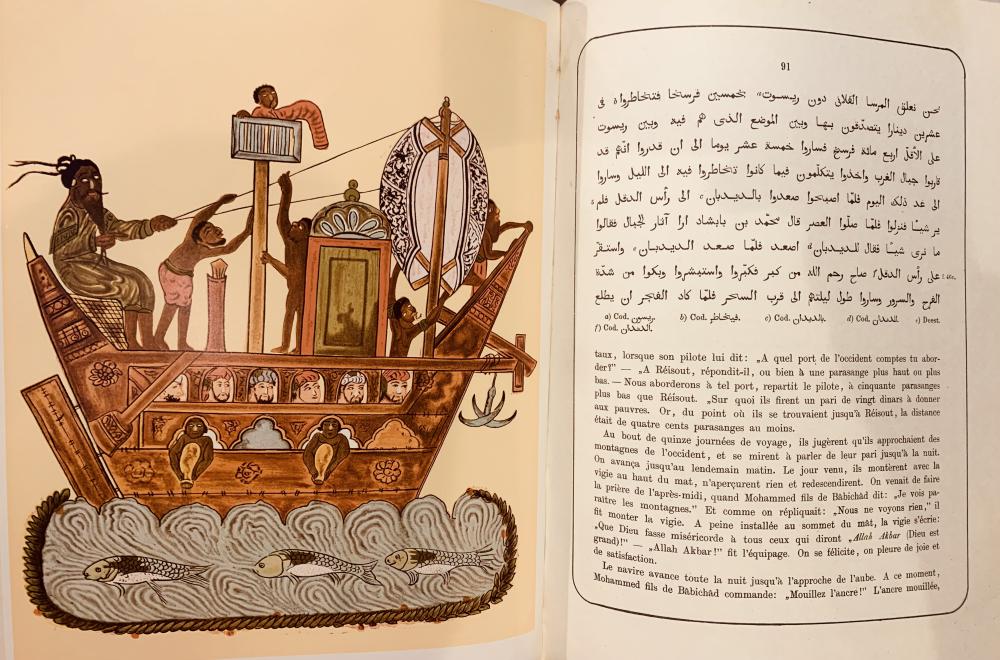 91
نحن نعلق المرسا الفلانى دون ريسوت بخمسين فرسخا فتخاطروا a فى
عشرين دينارا يتصدّقون بها وبين الموضع الذى هم فيه وبين ريسوت
على الأقلّ اربع مائة فرسخ فساروا خمسة عشر يوما الى ان قدروا انّهم قد
قاربوا جبال الغرب واخذوا يتكلّمون فيما كانوا تخاطروا فيه الى الليل وساروا
الى غد ذلك اليوم فلمّا اصبحوا صعدوا بالديدبان الى رأس الدقل فلم
ير شيئًا فنزلوا فلمّا صلّوا العصر قال محمّد بن بابشاد ارا آثار الجبال فقالوا
ما نرى شيئًا فقال للديدبان اصعد فلمّا صعد الديدبان واستقرّ
على رأس الدقل صاح رحم الله من كبر فكبّروا واستبشروا وبكوا من شدّة
الفرح والسرور وساروا طول ليلتهم الى قرب السحر فلمّا كاد الفجر ان يطلع
a) Cod. ريسون. b) Cod. فيتخاطر. c) Cod. d) Cod. e) Deest.
f) Cod.
taux, lorsque son pilote lui dit: „A quel port de l'occident comptes tu abor-
der?" — „A Réisout, répondit-il, ou bien à une parasange plus haut ou plus
bas. — Nous aborderons à tel port, repartit le pilote, à cinquante parasanges
plus bas que Réisout. „Sur quoi ils firent un pari de vingt dinars à donner
aux pauvres. Or, du point où ils se trouvaient jusqu'à Réisout, la distance
était de quatre cents parasanges au moins.
Au bout de quinze journées de voyage, ils jugèrent qu'ils approchaient des
montagnes de l'occident, et se mirent à parler de leur pari jusqu'à la nuit.
On avança jusqu'au lendemain matin. Le jour venu, ils montèrent avec la
vigie au haut du mat, n'aperçurent rien et redescendirent. On venait de faire
la prière de l'après-midi, quand Mohammed fils de Bâbichâd dit: „Je vois pa-
raître les montagnes." Et comme on répliquait: „Nous ne voyons rien," il
fit monter la vigie. A peine installée au sommet du mât, la vigie s'écrie:
„Que Dieu fasse miséricorde à tous ceux qui diront „Allah Akbar (Dieu est
grand)!" — „Allah Akbar!" fit l'équipage. On se félicite, on pleure de joie et
de satisfaction.
Le navire avance toute la nuit jusqu'à l'approche de l'aube. A ce moment,
Mohammed fils de Bâbichâd commande: „Mouillez l'ancre!" L'ancre mouillée,